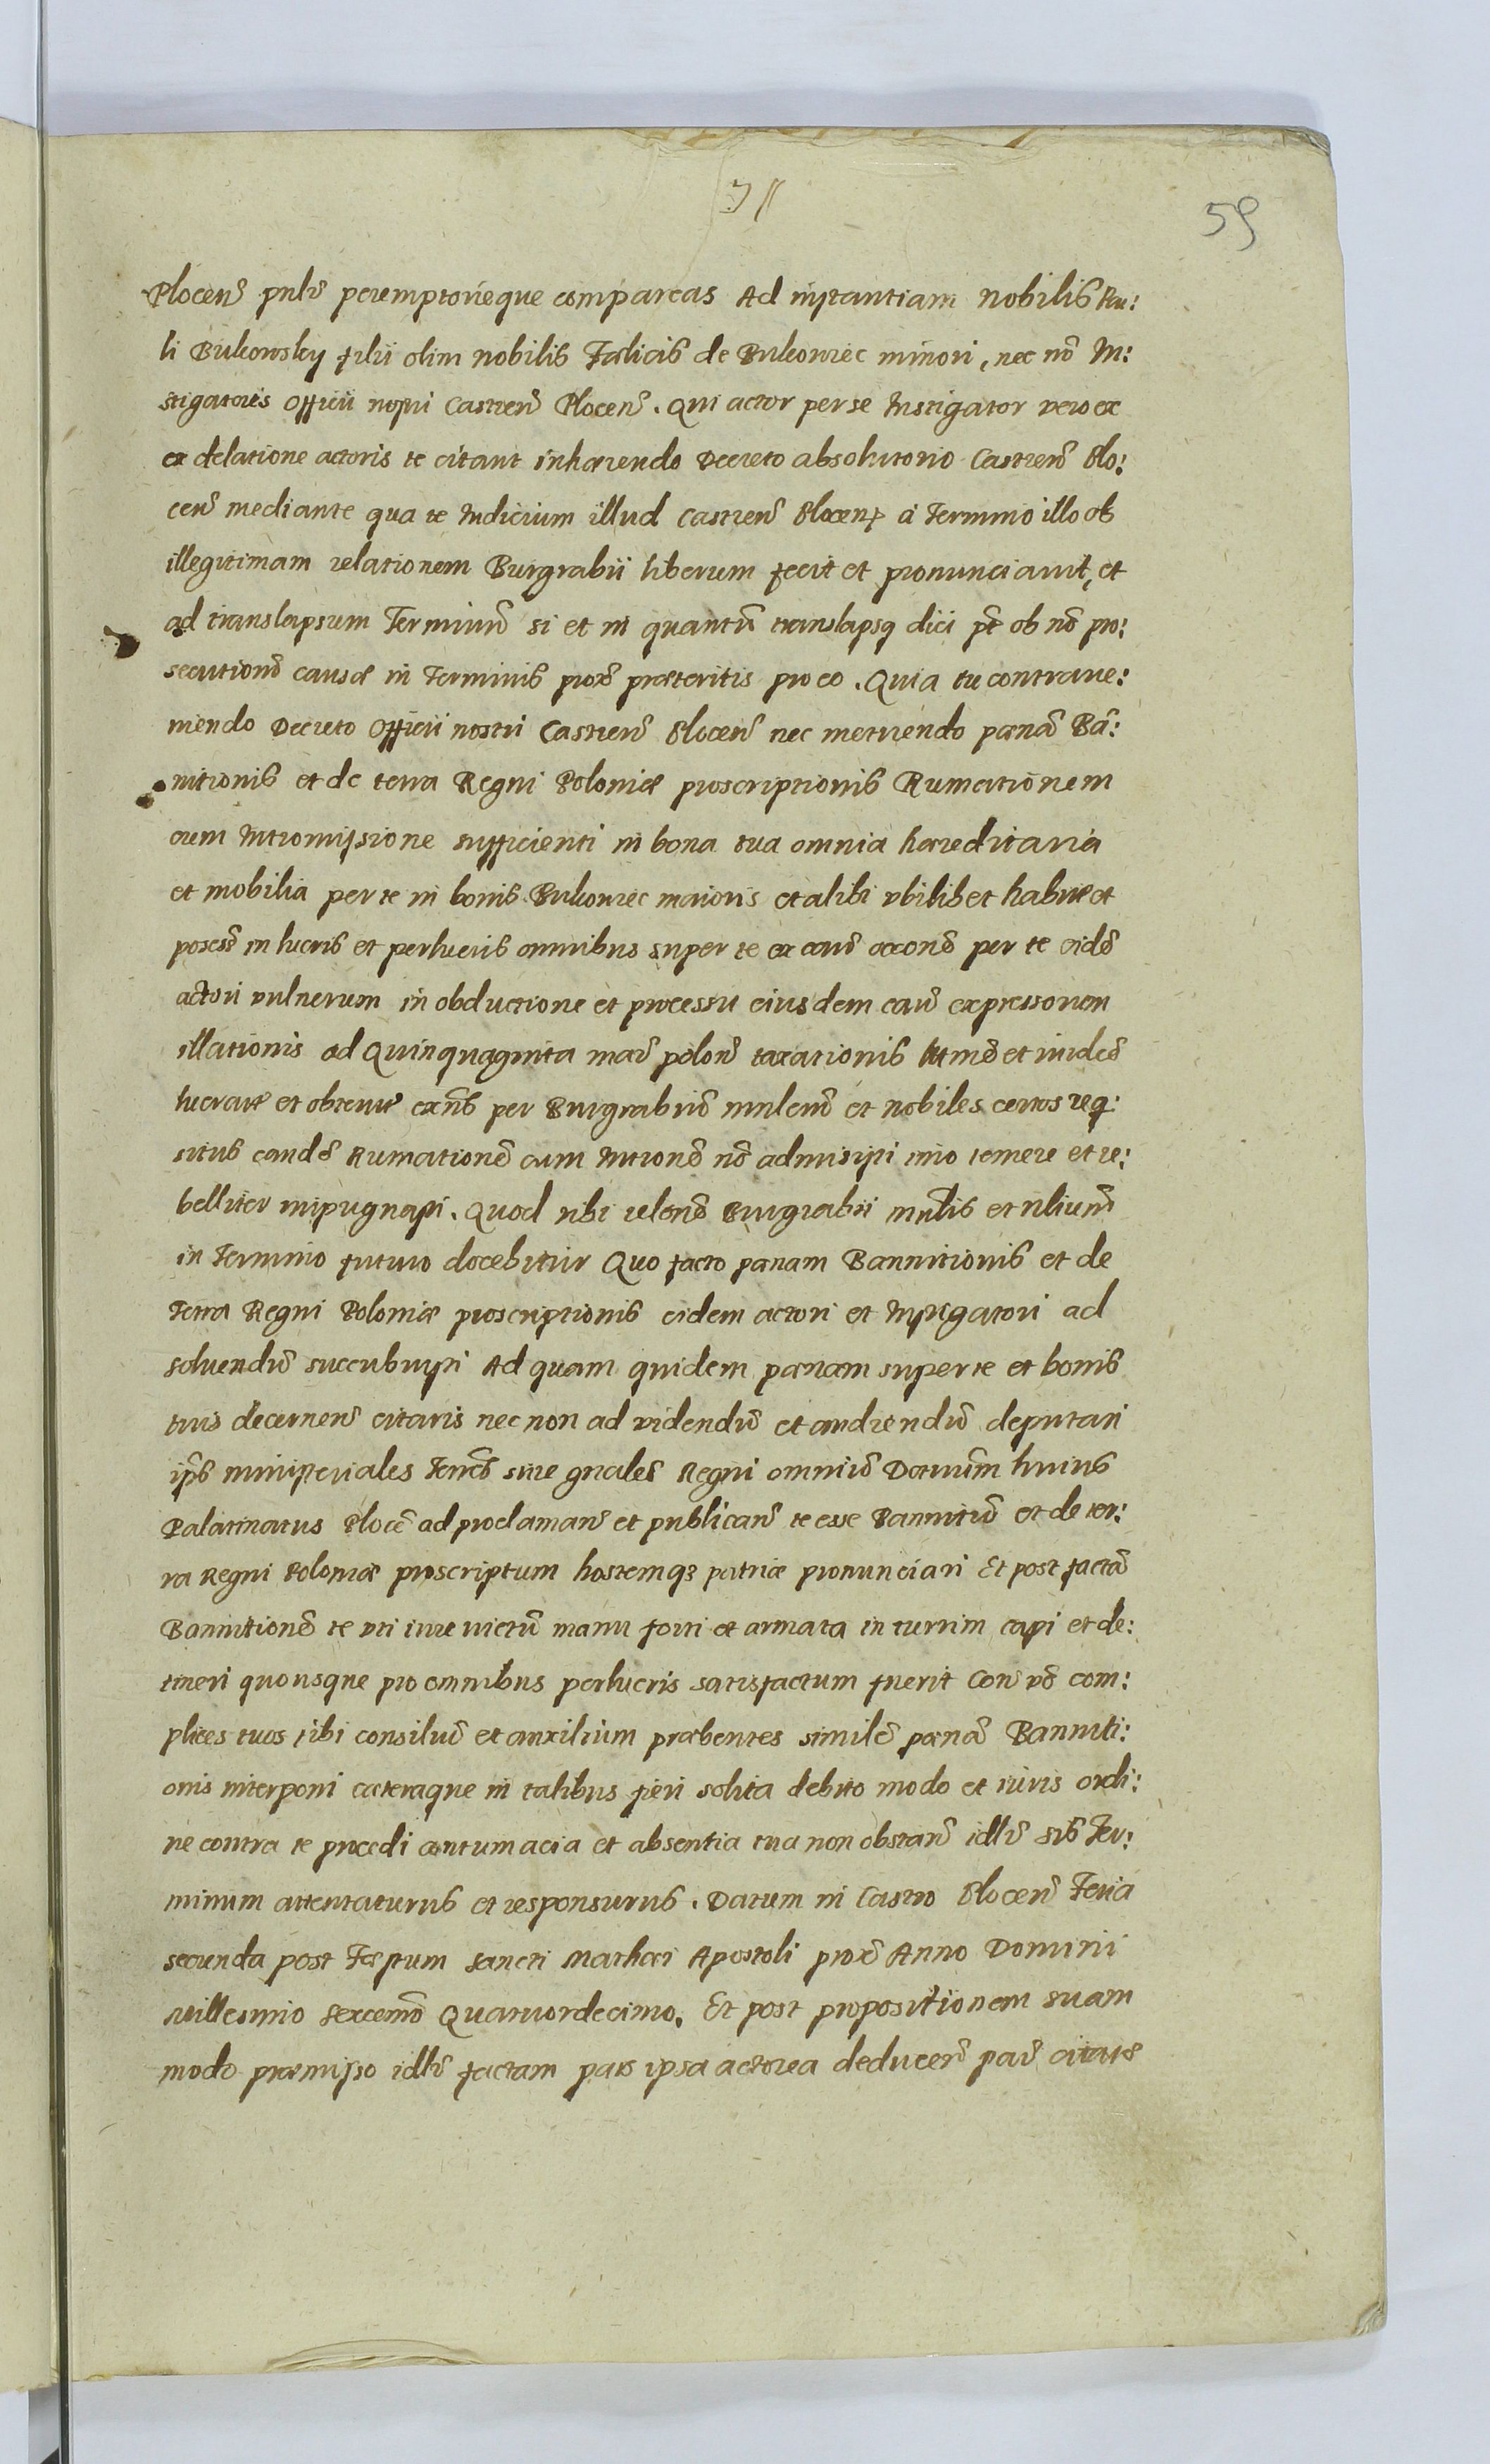 59
Plocen̄ pnlr̄ peremptorieque compareas Ad instantiam nobilis Pau:
li Bukowsky filii olim nobilis Fælicis de Bukowiec minori, nec nō In:
stigatoris Officii nostri Castren̄ Plocen̄. Qui actor per se Instigator vero ex
ex delatione actoris te citant inhærendo Decreto absolutorio Castren̄ Plo:
cen̄ mediante qua te Iudicium illud Castren̄ Plocen̄ a Termino illo ob
illegitimam relationem Burgrabii liberum fecit et pronunciavit, et
ad translapsum Terminū si et in quantū translapsq dici pt̄ ob nō pro:
secutionē causæ in Terminis prox̄ præteritis pro eo. Quia tu contrave:
niendo Decreto Officii nostri Castren̄ Plocen̄ nec metuendo pænā Bā:
nitionis et de terra Regni Poloniæ proscriptionis Rumationem
cum Intromissione sufficienti in bona tua omnia hæreditaria
et mobilia per te in bonis Bukowiec maioris et alibi vbilibet habit et
posess̄ in lucris et perlucris omnibus super te ex caūs accōnē per te eidē
actori vulnerum in obductione et processu eiusdem caūs expressorum
illationis ad Quinquaginta mar̄ polon̄ taxationis lttmē et iuridcē
lucrat̄ et obtent̄ exn̄s per Burgrabiū mnlem̄ et nobiles certos req:
situs eandē Rumationē cum Intronē nō admisisti imo temere et re:
belliter impugnasti. Quod tibi relonē Burgrabii mnl̄is et nliūm̄
in Termino futuro docebitur Quo facto pænam Bannitionis et de
Terra Regni Poloniæ proscriptionis eidem actori et Instigatori ad
soluendū succubuisti Ad quam quidem pænam super te et bonis
tuis decernen̄ citaris nec non ad videndū et audiendū deputari
ip̄s ministeriales Terrēs sive gnales̄ Regni omniū Dotuum̄ huius
Palatinatus Plocē ad proclaman̄ et publican̄ te esse Bannitū et de ter:
ra Regni Poloniæ proscriptum hostemq3 patriæ pronunciari Et post factā
Bannitionē te vti iure victū manu forti et armata in turrim capi et de:
tineri quousque pro omnibus perlucris satisfactum fuerit Con̄ vō com:
plices tuos tibi consiliū et auxilium præbentes similē pænā Banniti:
onis interponi cæteraque in talibus fieri solita debito modo et iuris ordi:
ne contra te procedi contumacia et absentia tua non obstan̄ idlr̄ sup̄ Ter:
minum attentaturus et responsurus. Datum in Castro Plocen̄ Feria
secunda post Festum Sancti Mathæi Apostoli prox̄ Anno Domini
Millesimo Sexcemō Quatuordecimo. Et post propositionem suam
modo præmisso idlr̄ factam pars ipsa actorea deducen̄ par̄ citatæ